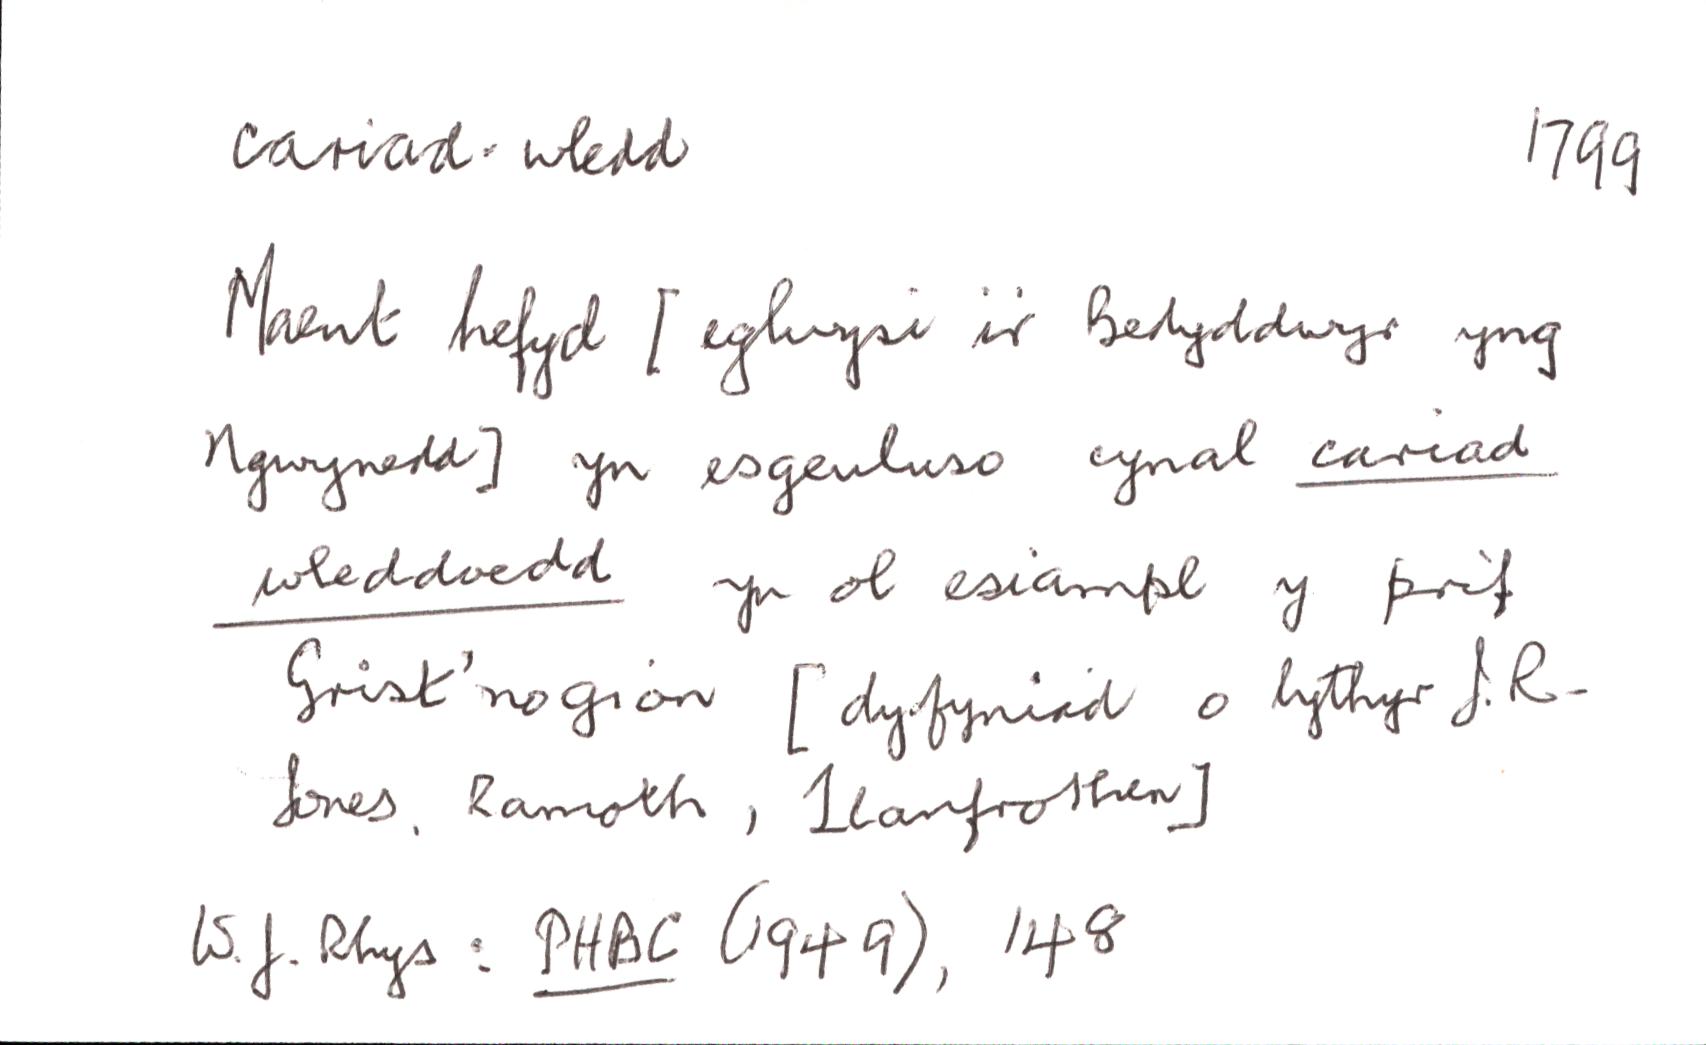 cariad-wledd 1799
Maent hefyd [eglwysi i'r Bedyddwyr yng
Ngwynedd] yn esgeuluso cynal cariad
wleddoedd yn ol esiampl y prif
Grist'nogion [dyfyniad o lythyr J.R.
Jones, Ramoth, Llanfrothen]
W.J. Rhys: PHBC (1949), 148